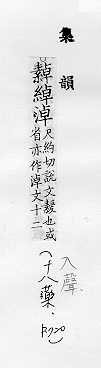 集韻
繛綽淖尺約切說文緩也或
省亦作淖文十二
入聲
十八藥